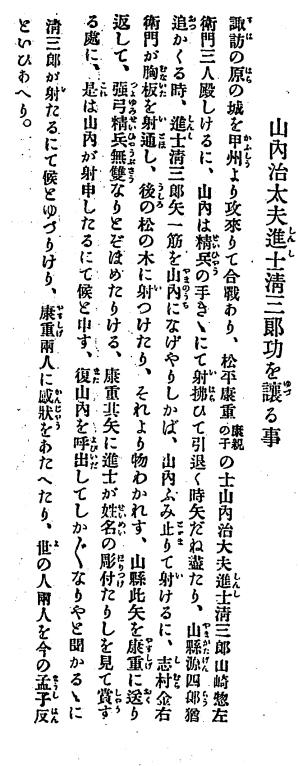 山内治太夫進士清三郎功を讓る事
諏訪の原の城を甲州より攻來りて合戰あり、松平康重康親の子の士山内治太夫進士清三郎山崎惣左
衛門三人殿しけるに、山内は精兵の手きゝにて射拂ひて引退く時矢だね盡たり、山縣源四郎猶
追かくる時、進士清三郎矢一筋を山内になげやりしかば、山内ふみ止りて射けるに、志村金右
衛門が胸板を射通し、後の松の木に射つけたり、それより物わかれす、山縣此矢を康重に送り
返して、強弓精兵無雙なりとぞほめたりける、康重其矢に進士が姓名の彫付たりしを見て賞す
る處に、是は山内が射申したるにて候と申す、復山内を呼出してしか〴〵なりやと聞かるゝに
清三郎が射たるにて候とゆづりけり、康重兩人に感狀をあたへたり、世の人兩人を今の孟子反
といひあへり。